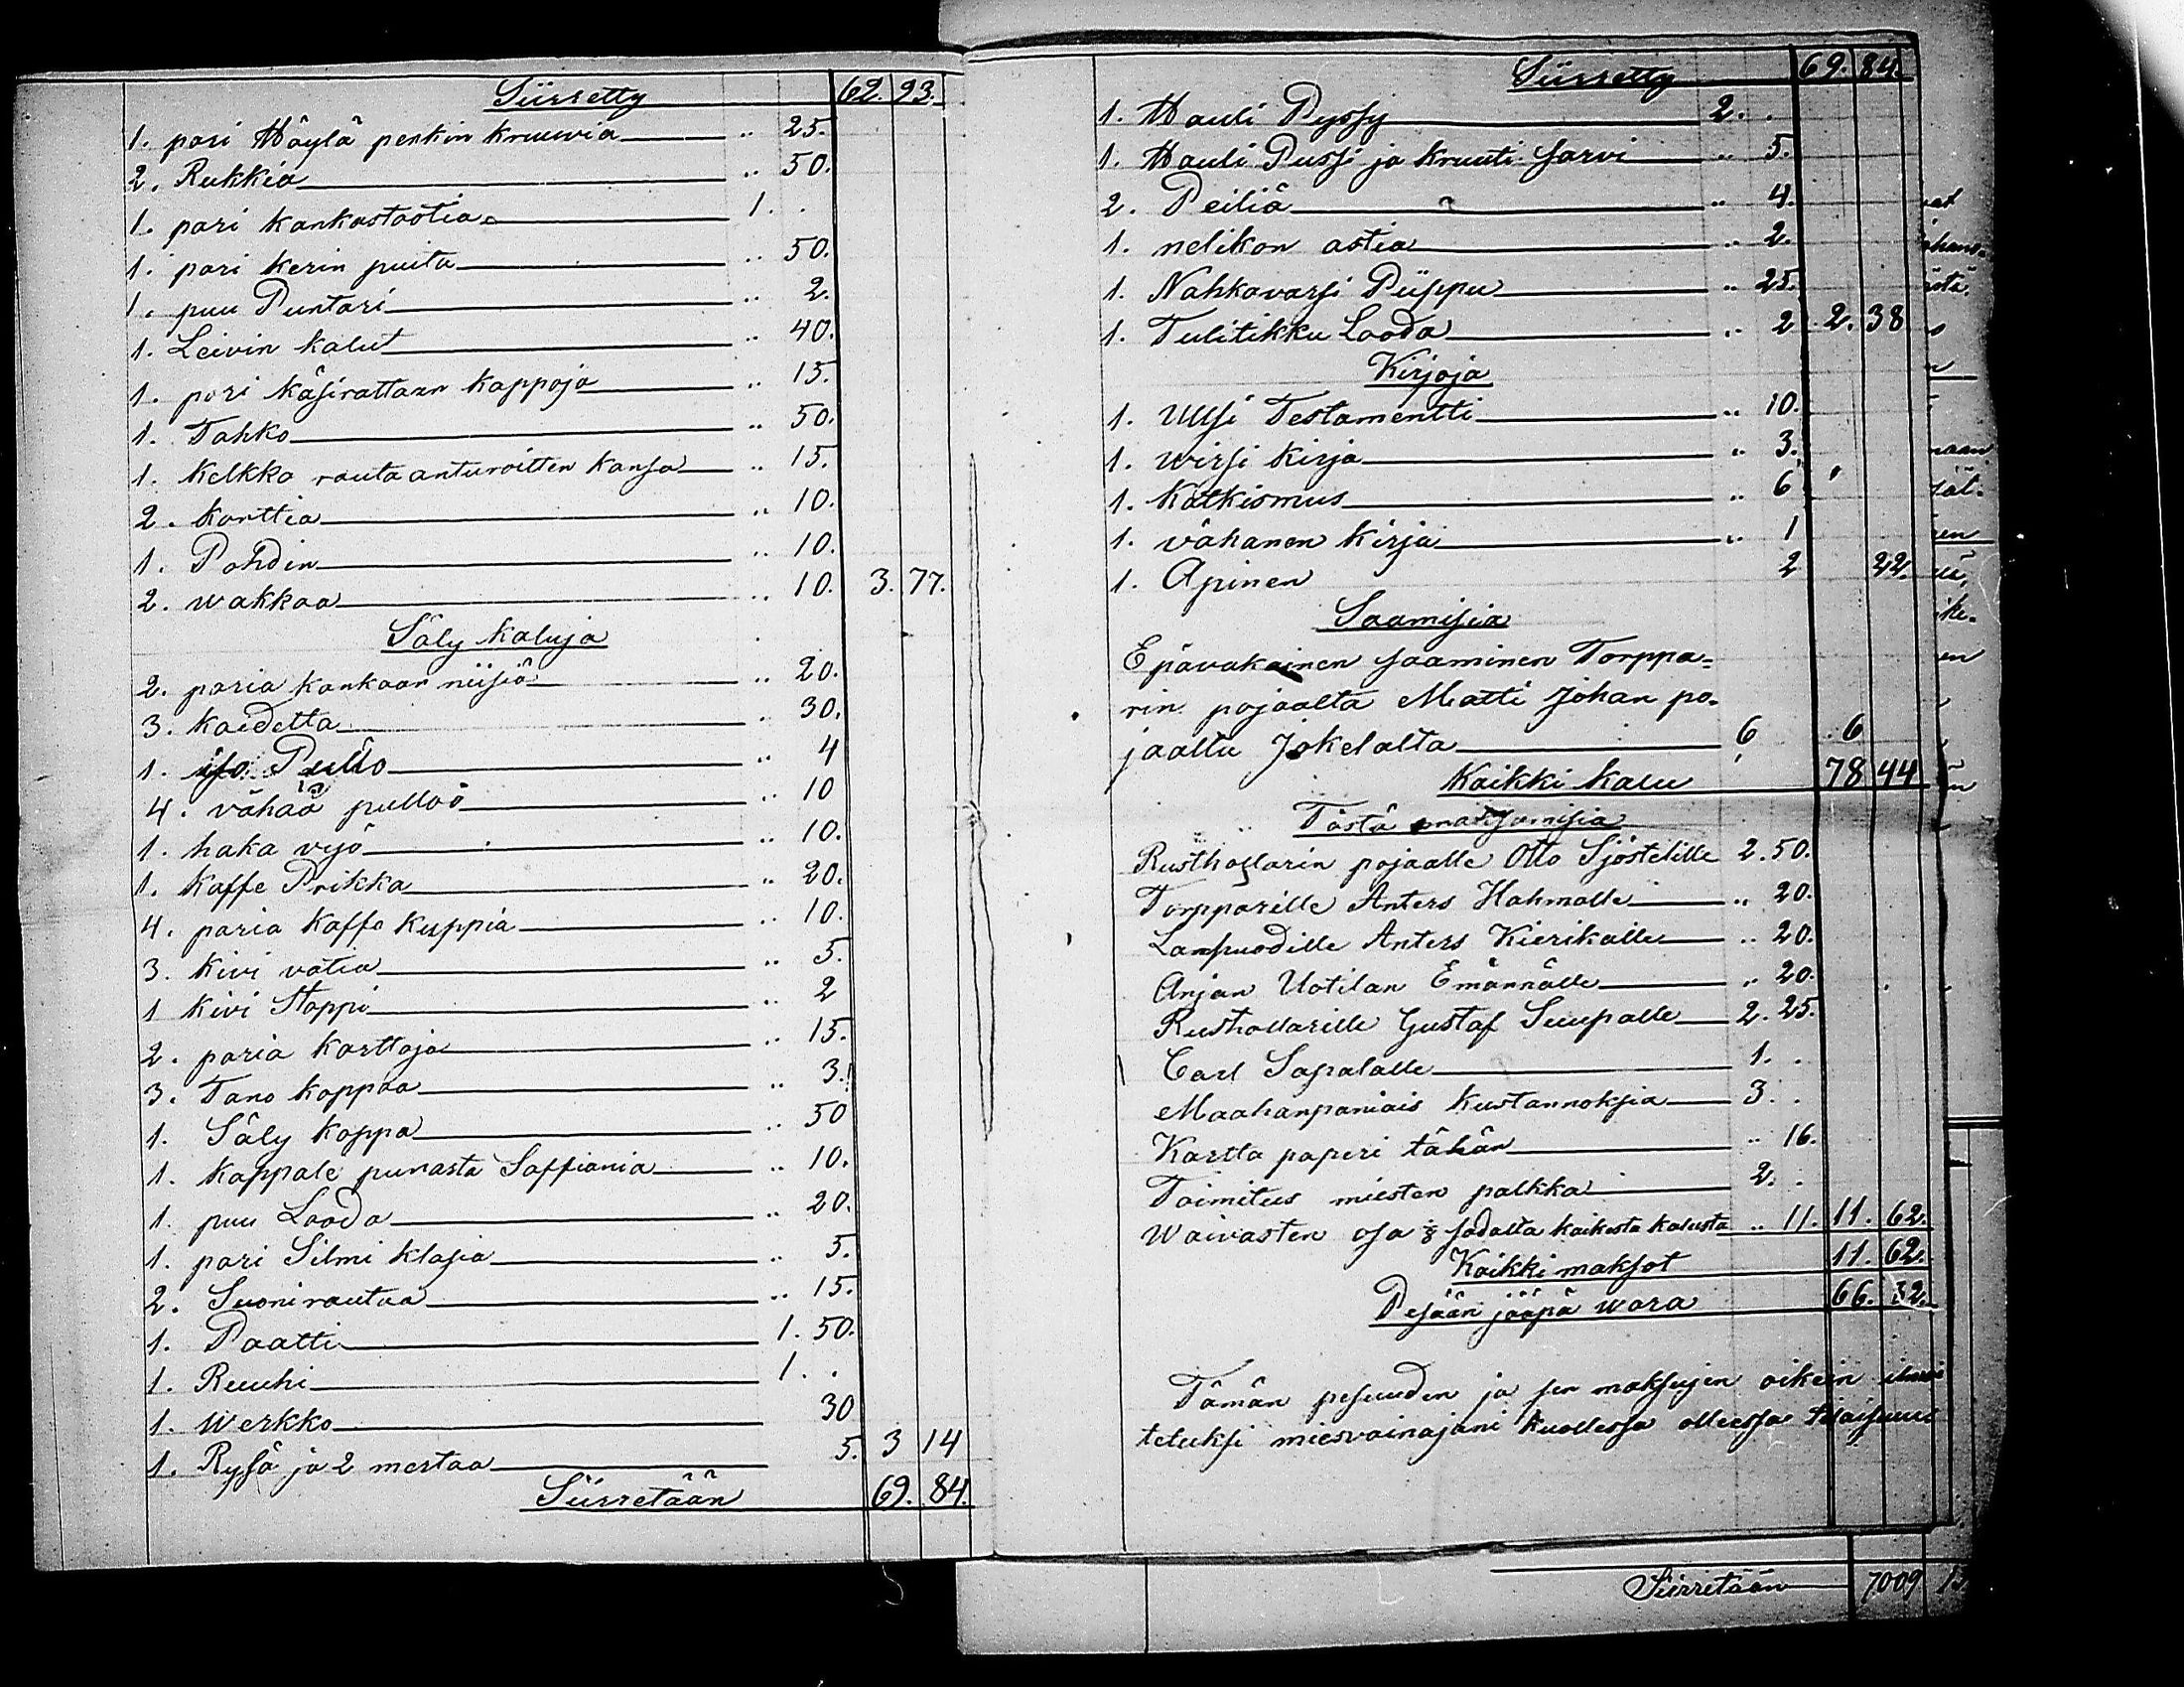 Siirretty 62. 93.
1. pari Höylä penkin kruuvia „ 25.
2. Rukkia „ 50.
1. pari kankastootia 1. .
1. pari kerin puita „ 50.
1. puu Puntari „ 2.
1. Leivin kalut „ 40.
1. pari käsirattaan kappoja „ 15.
1. Tahko „ 50.
1. Kelkko rauta anturoitten kansa „ 15.
2. korttia „ 10.
1. Pohdin „ 10.
2. wakkaa „ 10. 3. 77.
Säly kaluja
2. paria kankaan niisiä „ 20.
3. kaidetta „ 30.
1. iso Pullo „ 4
4. vähää pulloo „ 10
1. haka vyö „ 10.
1. Kaffe Prikka „ 20.
4. paria kaffe kuppia „ 10.
3. kivi vatia „ 5.
1 kivi Stoppi „ 2
2. paria karttoja „ 15.
3. Tano koppaa „ 3.
1. Säly koppa „ 50
1. kappale punasta Saffiania „ 10.
1. puu Looda „ 20.
1. pari Silmi klasia „ 5.
2. Suonirautaa „ 15.
1. Paatti 1. 50.
1. Ruuhi 1. .
1. Werkko 30
1. Rysä ja 2 mertaa 5. 3 14
Siirretään 69. 84.
Siirretty 69. 84.
1. Hauli Pyssy 2. .
1. Hauli Pussi ja kruuti sarvi „ 5.
2. Peiliä „ 4.
1. nelikon astia „ 2.
1. Nahkavarsi Piippu „ 25.
1. Tulitikku Looda „ 2 2. 38
Kirjoja
1. Uusi Testamentti „ 10.
1. wirsi kirja „ 3.
1. Katkismus „ 6
1. vähanen kirja „ 1
1. Apinen 2 22.
Saamisia
Epävakainen saaminen Torppa=
rin pojaalta Matti Johan po-
jaalta Jokelalta 6 6
Kaikki kalu 78 44
Tästä maksamisia
Rusthollarin pojaalle Otto Sjöstelille 2. 50.
Torpparille Anters Hahmalle „ 20.
Lampuodille Anters Kierikalle „ 20.
Anjan Uotilan Emännälle „ 20.
Rusthollarille Gustaf Suupalle 2. 25.
Carl Sapalalle 1. .
Maahanpaniais kustannoksia 3. .
Kartta paperi tähän „ 16.
Toimitus miesten palkka 2. .
Waivasten osa ⅛ sadalta kaikesta kalusta „ 11. 11. 62.
Kaikki maksot 11. 62.
Pesään jääpä wara 66. 82.
Tämän pesuuden ja sen maksujen oikein
tetuksi miesvainajani kuollessa olleessa
Siirretään 7009